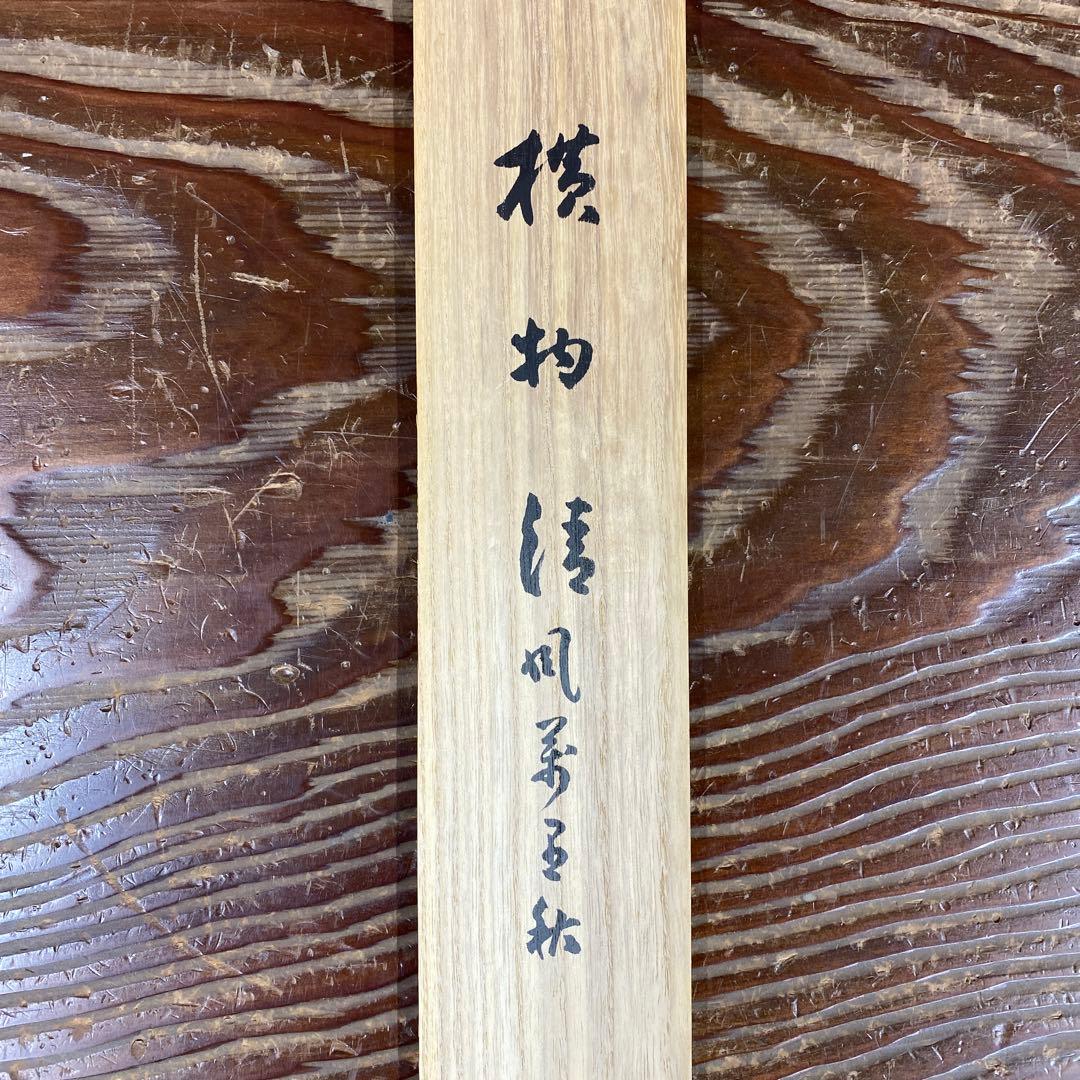 横物 清風萬里秋